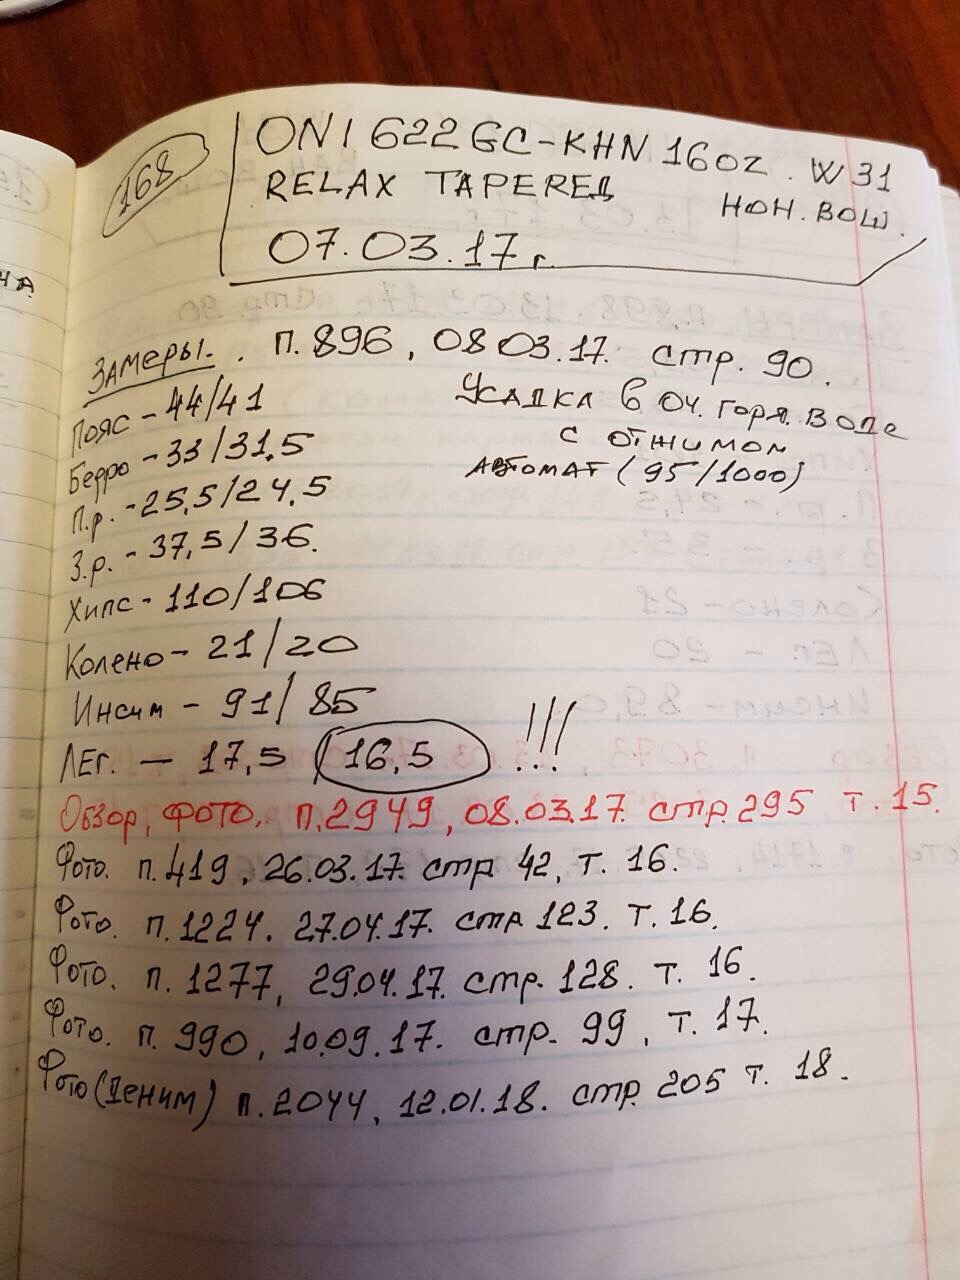 168
ONI 622 GC-KHN 16 OZ. W 31
RELAX TAPEREД НОН. ВОШ.
07.03.17 г.
Замеры. п.896, 08 03.17. стр. 90.
Усадка в оч. горя. воде
с отжимом
автомат (95/1000)
Пояс - 44/41
Бедро - 33/31,5
П.р. - 25,5/24,5
З.р. - 37,5/36.
Хипс - 110/106
Колено - 21/20
Инсим - 91/85
ЛЕг. — 17,5 /16,5 !!!
Обзор, фото. п.2949, 08.03.17. стр. 295 т. 15.
Фото. п.419, 26.03.17. стр 42, т. 16.
Фото. п.1224. 27.04.17. стр 123. т. 16.
Фото. п. 1277, 29.04.17. стр. 128. т. 16.
Фото. п. 990, 10.09.17. стр. 99, т. 17.
Фото (Деним) п.2044, 12.01.18. стр. 205 т. 18.